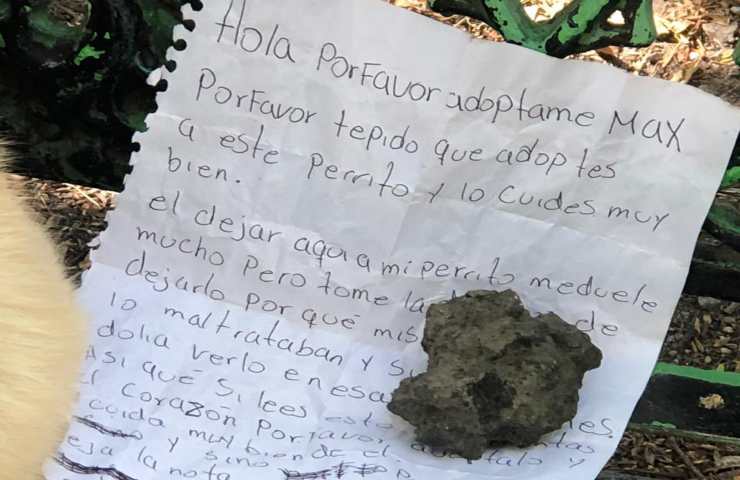 Hola PorFavor adoptame Max
PorFavor tepido que adoptes
a este perrito y lo cuides muy
bien.
el dejar aqui a mi perrito meduele
mucho Pero tome la de
dejarlo por qué mis
lo maltrataban y
dolia verlo en esa
Asi que si lees esto
el corazón Porfavor y
cuida muy bien de el
y sino
la nota